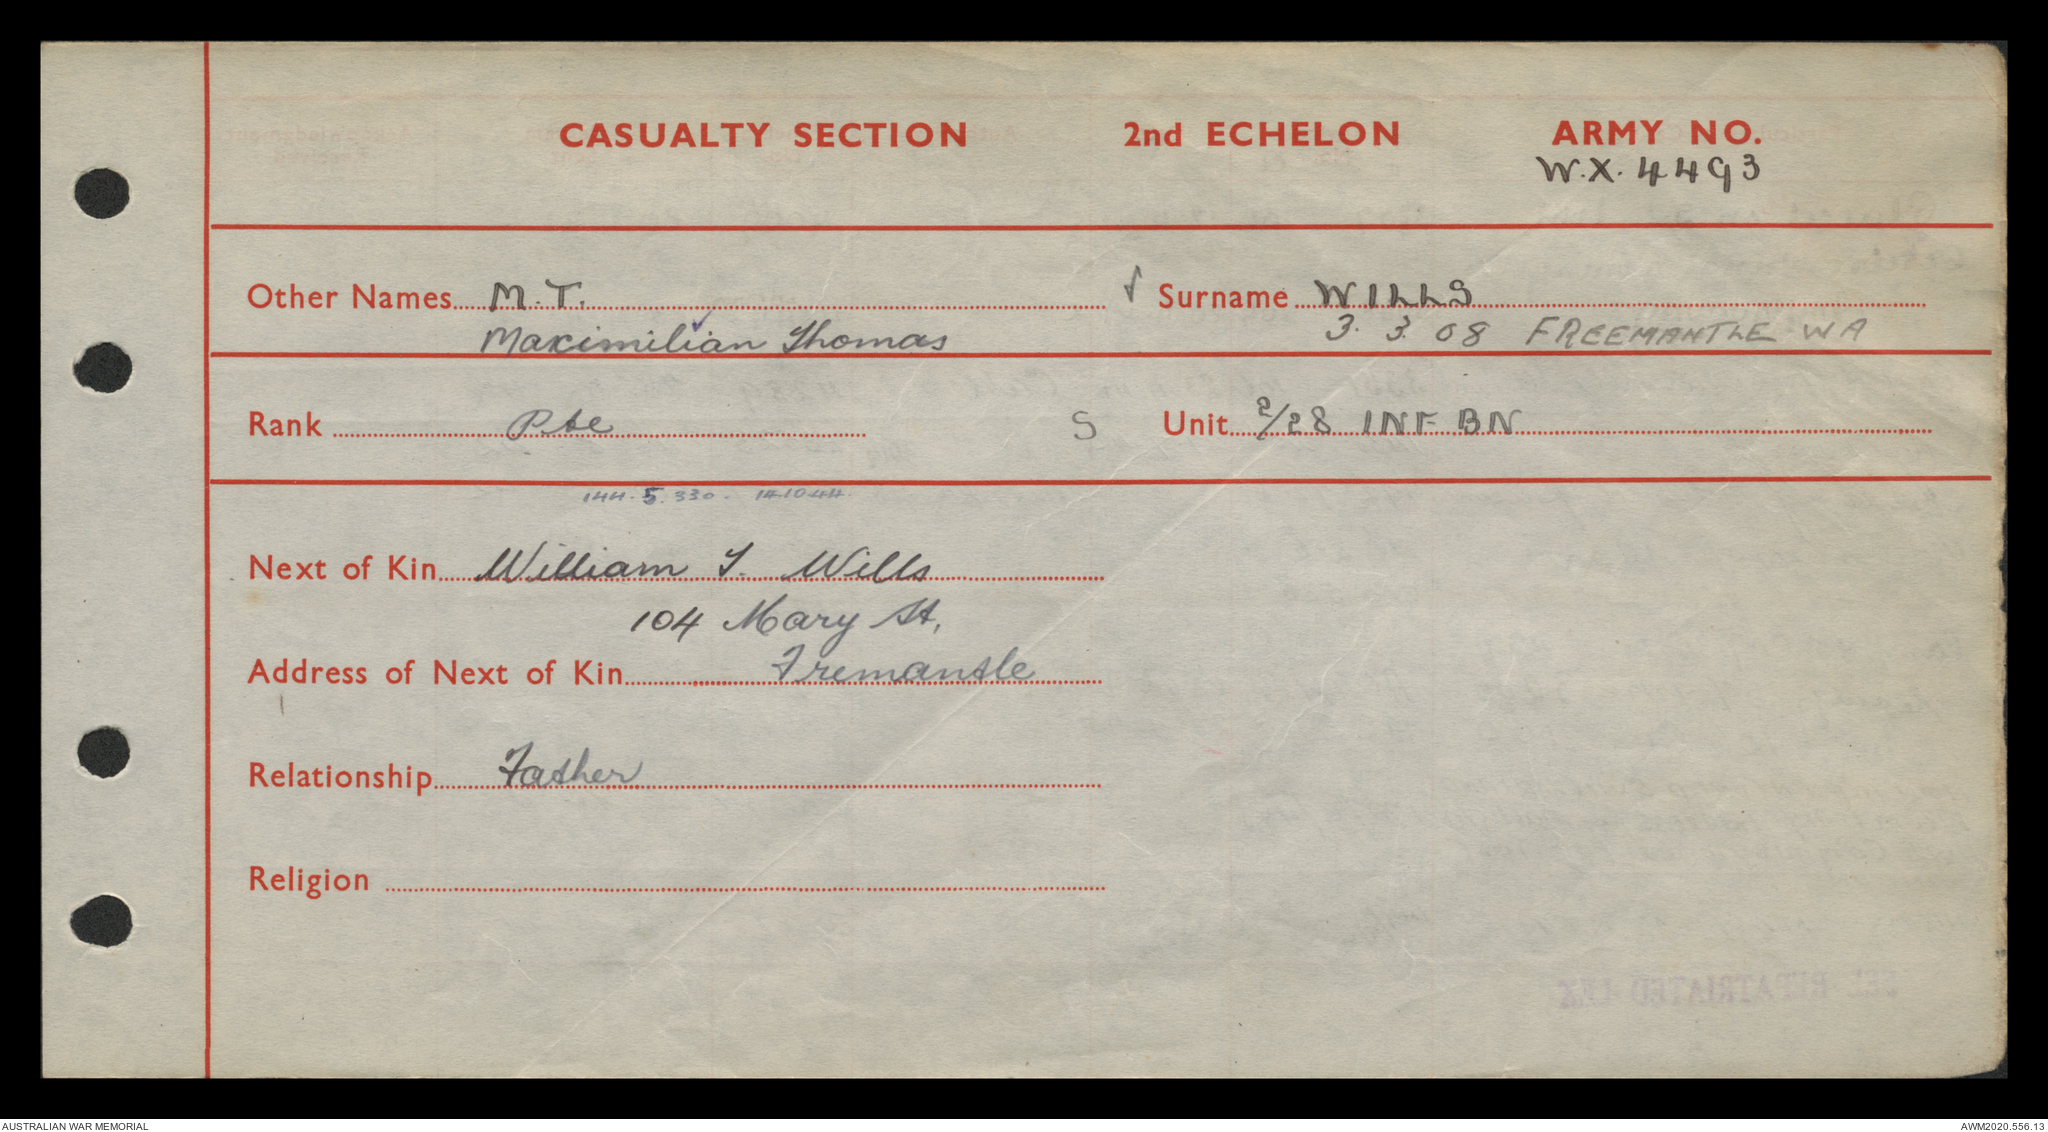 CASUALTY SECTION 2nd ECHELON ARMY NO.
W.X. 4493
Other Names M.T. Surname WILLS
Maximilian Thomas 3. 3. 08 FREEMANTLE WA
Rank Pte S Unit 2/28 INF BN
144. 5. 330. 141044.
Next of Kin William T. Wills
104 Mary St,
Address of Next of Kin Fremantle
Relationship Father
Religion
AUSTRALIAN WAR MEMORIAL AWM2020.556.13